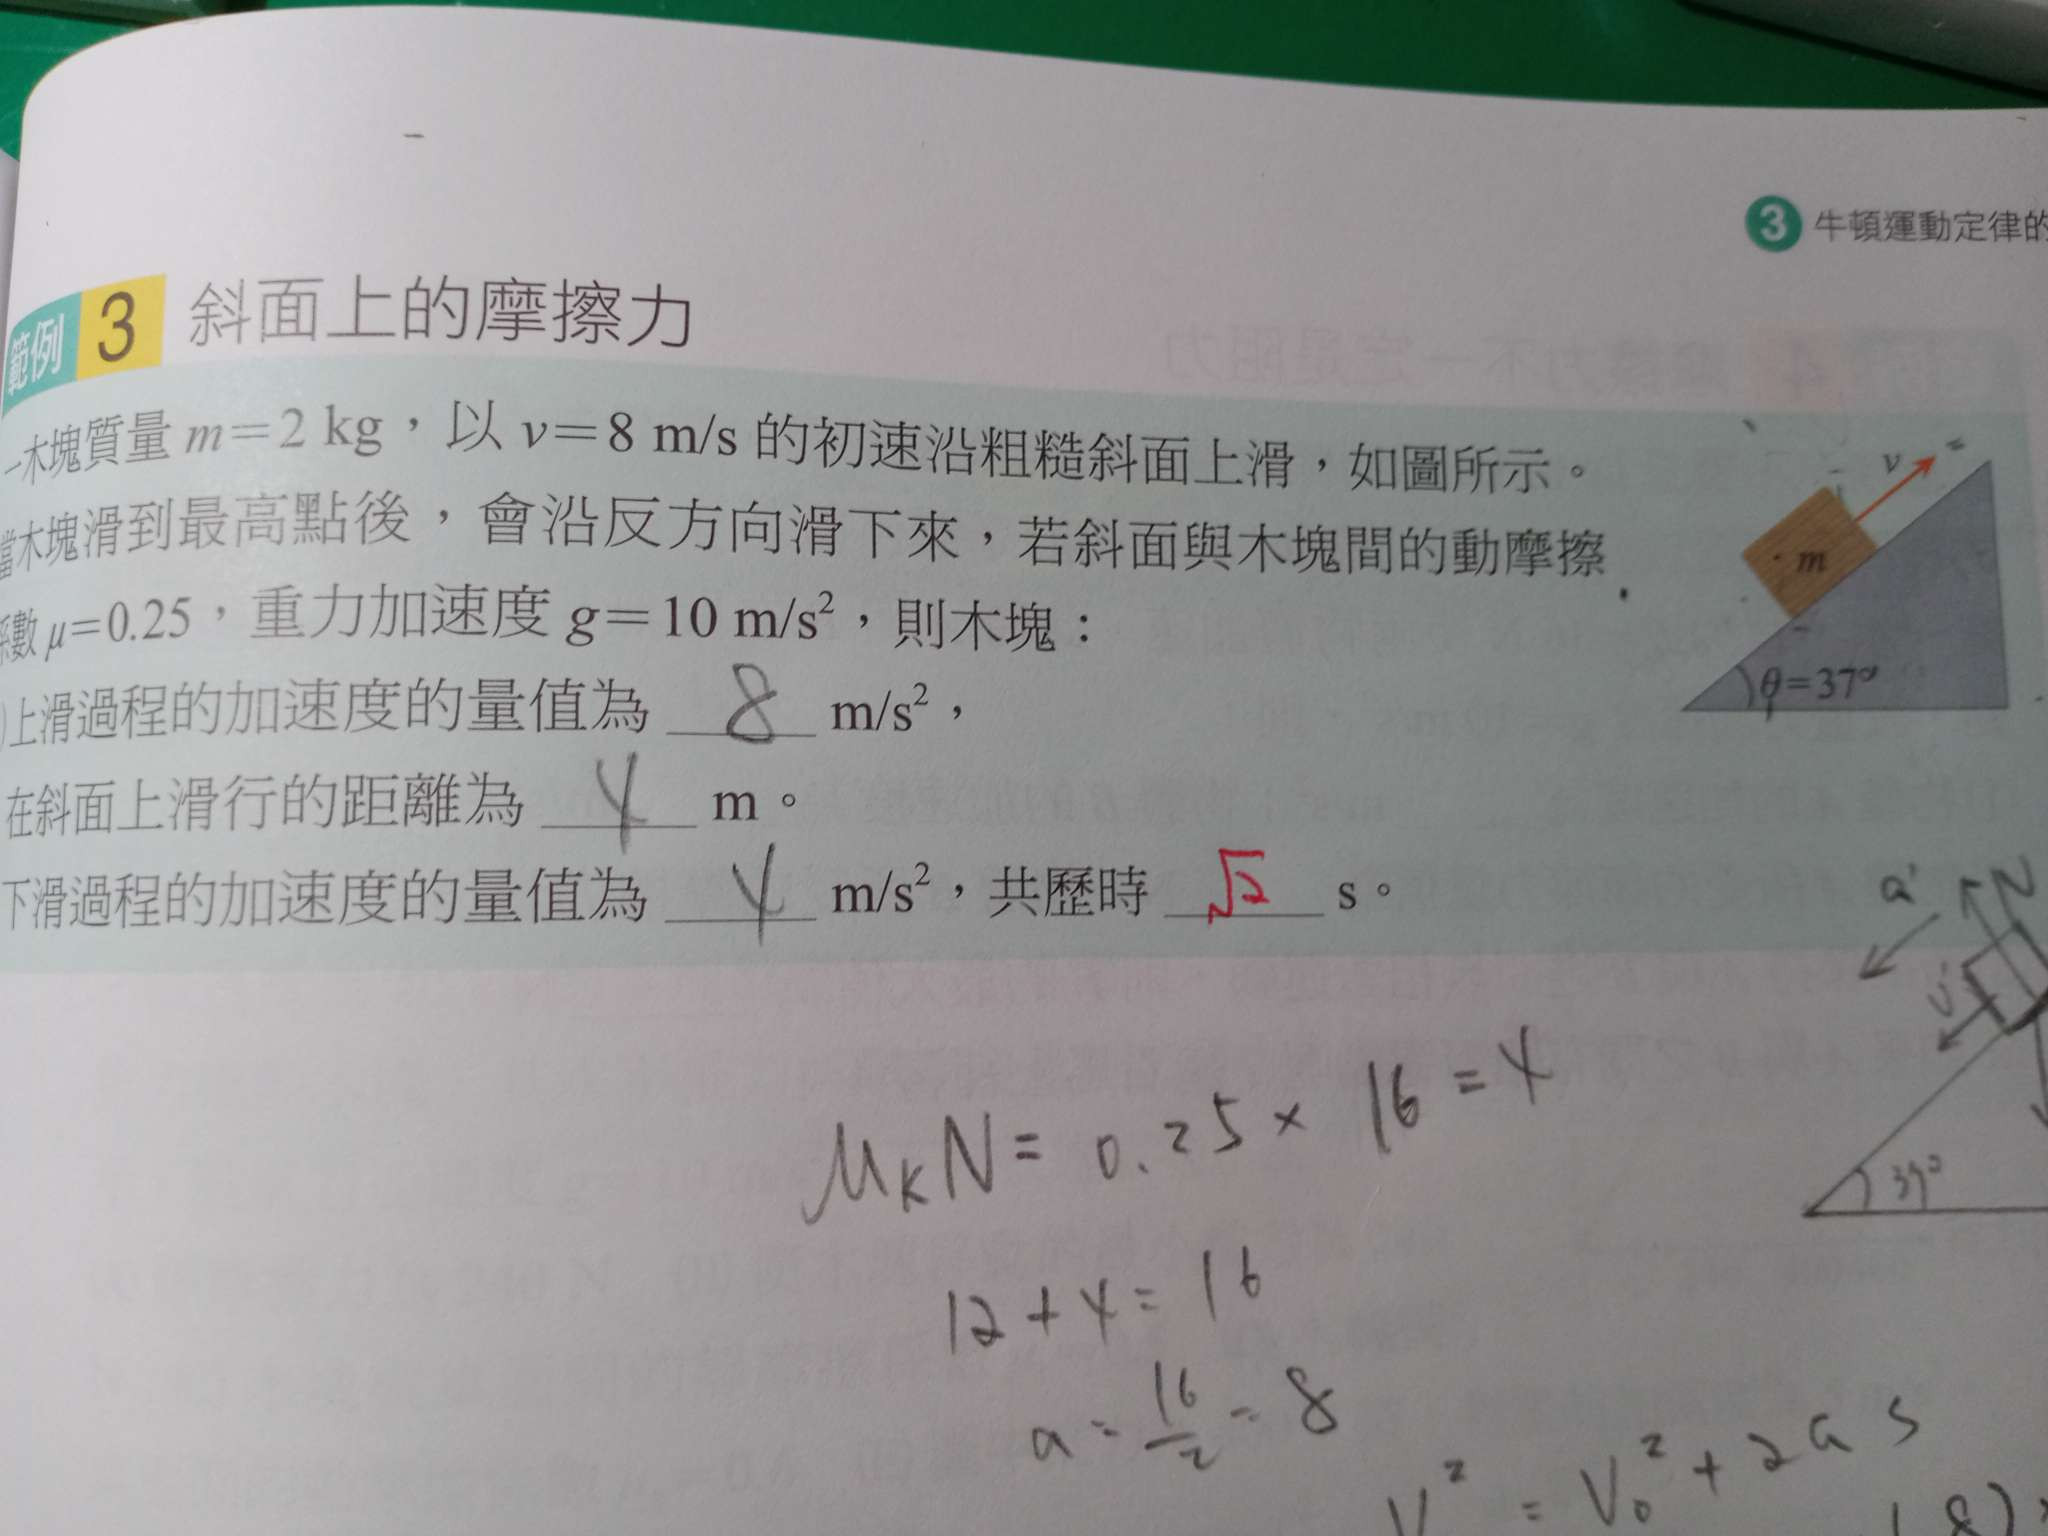 3 牛頓運動定律的
範例 3 斜面上的摩擦力
一木塊質量 m=2 kg，以 v=8 m/s 的初速沿粗糙斜面上滑，如圖所示。
當木塊滑到最高點後，會沿反方向滑下來，若斜面與木塊間的動摩擦
係數 μ=0.25，重力加速度 g=10 m/s²，則木塊：
)上滑過程的加速度的量值為 8 m/s²，
在斜面上滑行的距離為 4 m。
下滑過程的加速度的量值為 4 m/s²，共歷時 √2 s。
v
m
θ=37°
a'
N
37°
μKN = 0.25 × 16 = 4
12 + 4 = 16
a = 16/2 = 8
V² = V₀² + 2 a s
(8)